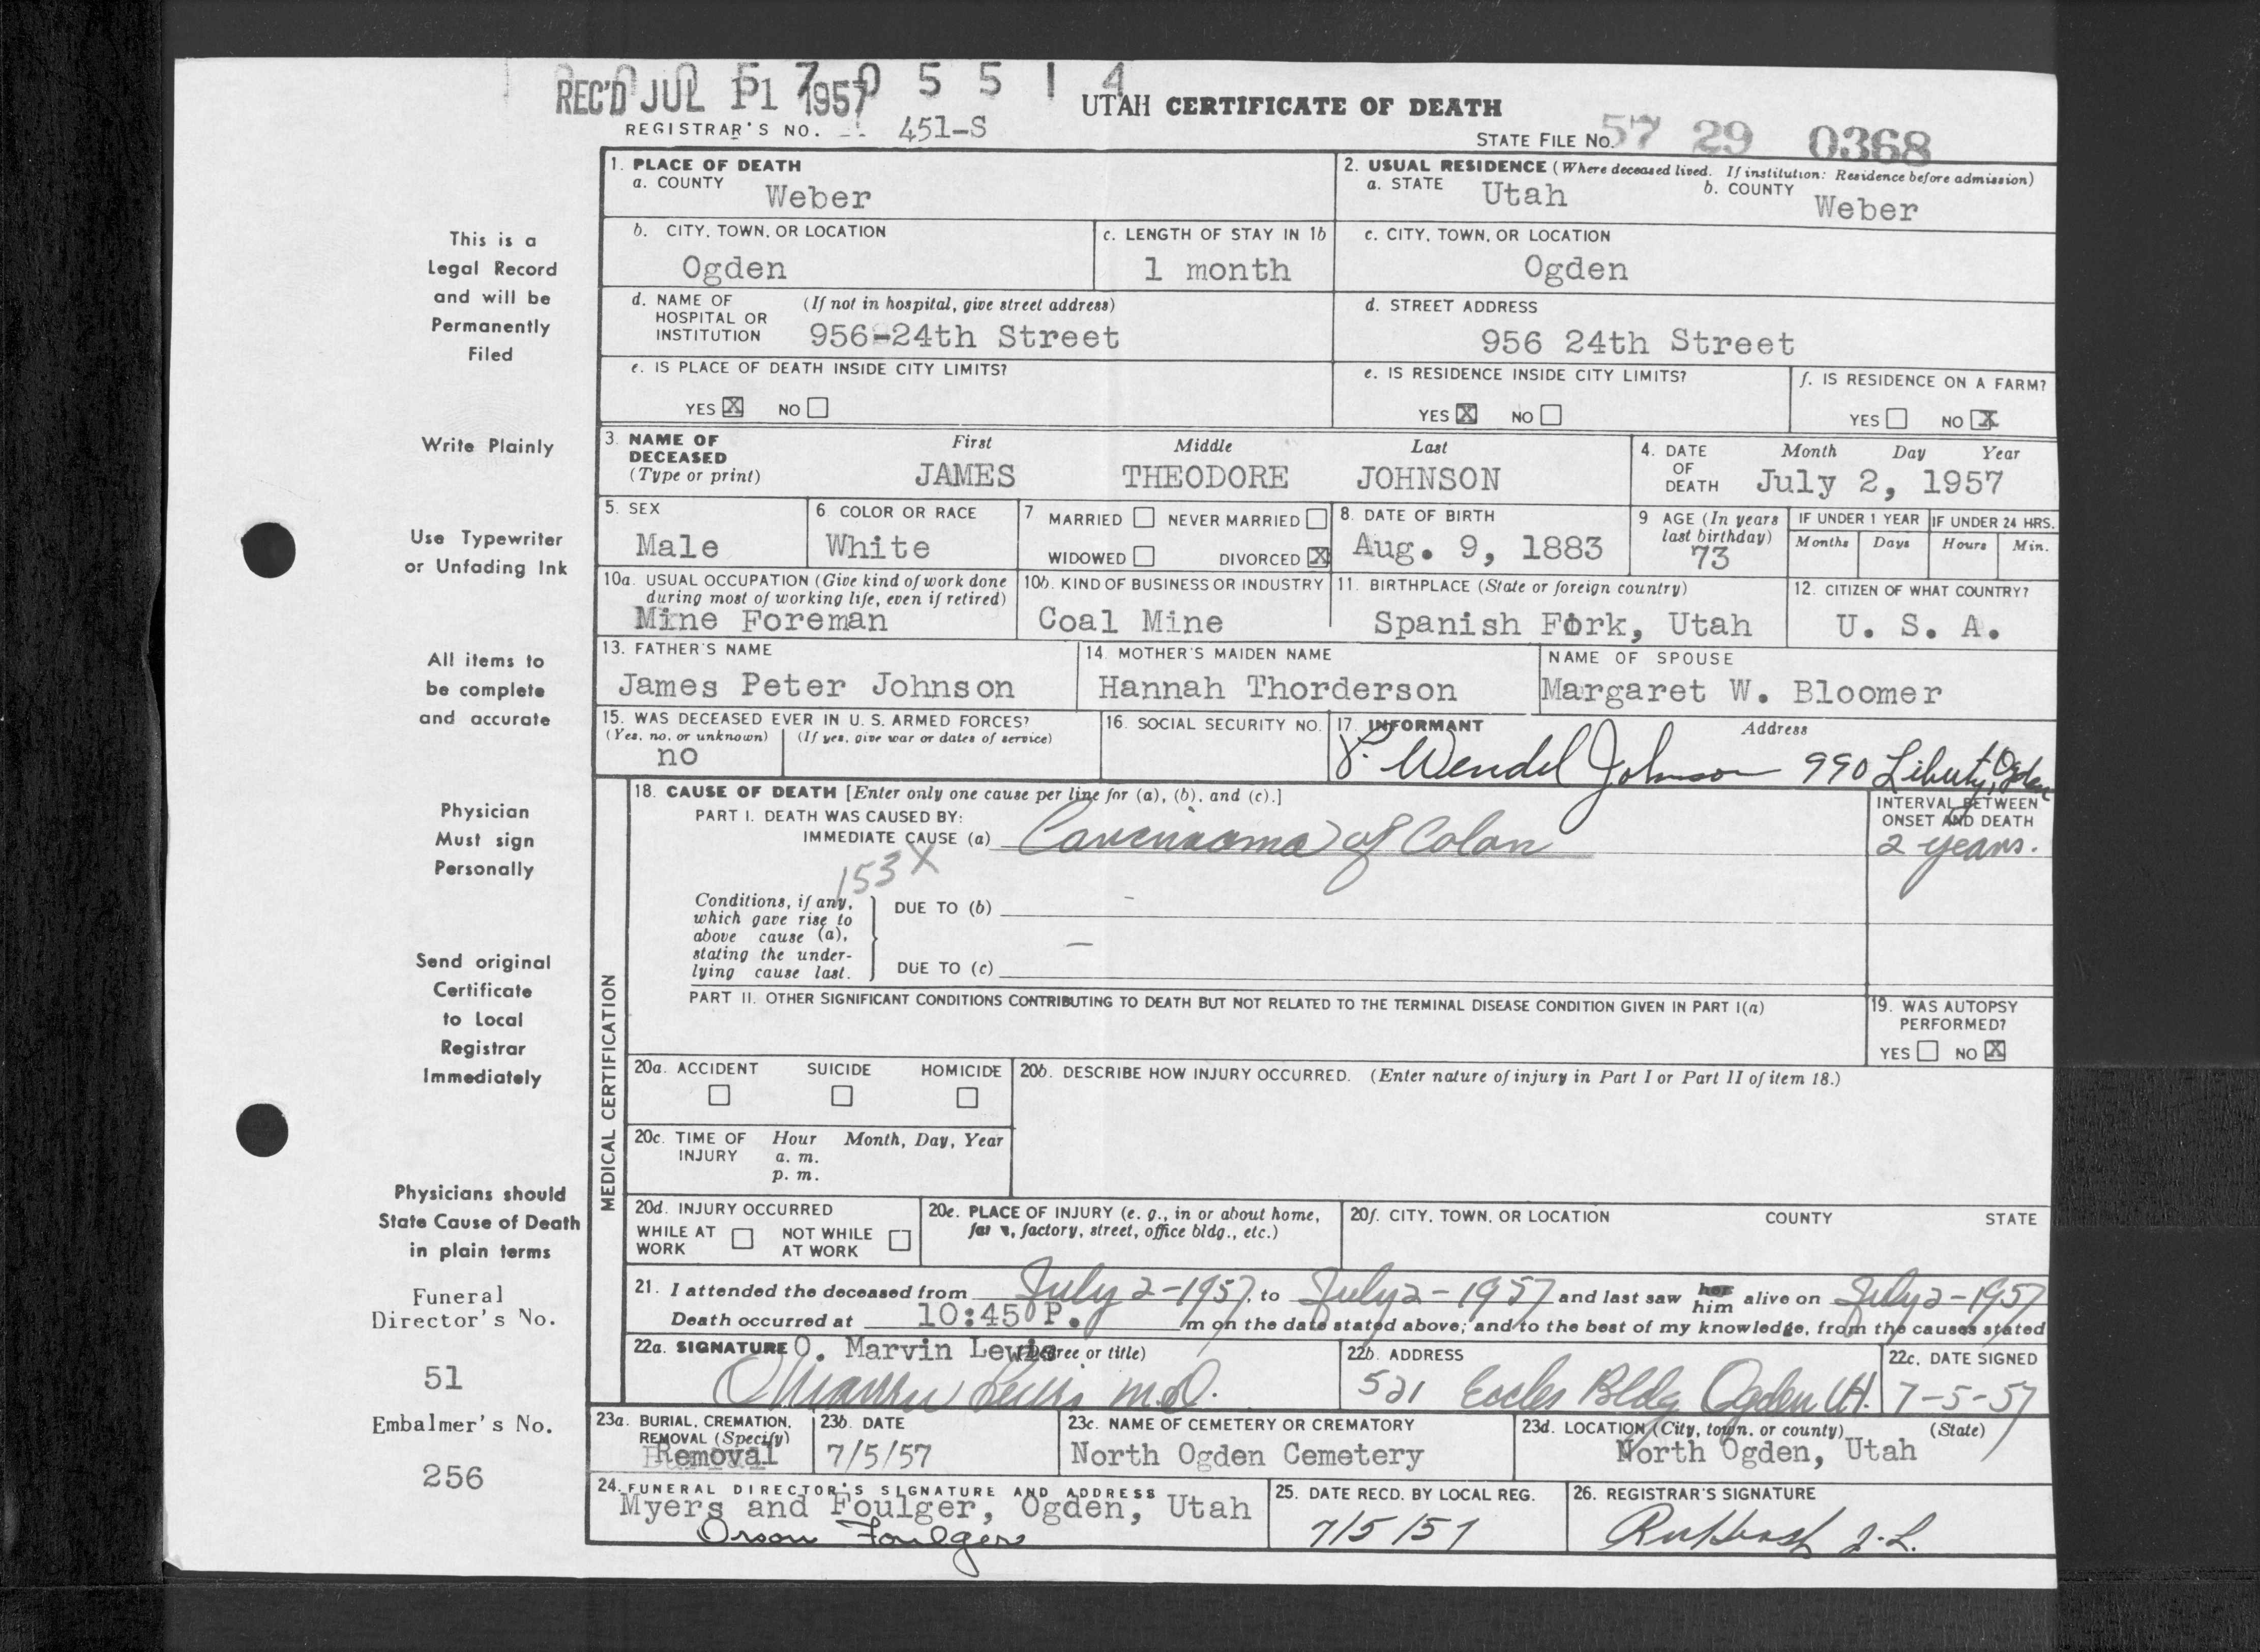 REC'D JUL 11 1957
5 5 1 4
UTAH CERTIFICATE OF DEATH
REGISTRAR'S NO. 451-S
STATE FILE NO. 57 29 0368
1. PLACE OF DEATH
a. COUNTY Weber
2. USUAL RESIDENCE (Where deceased lived. If institution: Residence before admission)
a. STATE Utah b. COUNTY Weber
b. CITY, TOWN, OR LOCATION Ogden
c. LENGTH OF STAY IN 1b 1 month
c. CITY, TOWN, OR LOCATION Ogden
d. NAME OF HOSPITAL OR INSTITUTION (If not in hospital, give street address) 956-24th Street
d. STREET ADDRESS 956 24th Street
e. IS PLACE OF DEATH INSIDE CITY LIMITS? YES X NO
e. IS RESIDENCE INSIDE CITY LIMITS? YES X NO
f. IS RESIDENCE ON A FARM? YES NO X
3. NAME OF DECEASED (Type or print) First Middle Last
JAMES THEODORE JOHNSON
4. DATE OF DEATH Month Day Year
July 2, 1957
5. SEX Male
6. COLOR OR RACE White
7 MARRIED NEVER MARRIED WIDOWED DIVORCED X
8. DATE OF BIRTH Aug. 9, 1883
9 AGE (In years last birthday) 73
IF UNDER 1 YEAR Months Days
IF UNDER 24 HRS. Hours Min.
10a. USUAL OCCUPATION (Give kind of work done during most of working life, even if retired) Mine Foreman
10b. KIND OF BUSINESS OR INDUSTRY Coal Mine
11. BIRTHPLACE (State or foreign country) Spanish Fork, Utah
12. CITIZEN OF WHAT COUNTRY? U. S. A.
13. FATHER'S NAME James Peter Johnson
14. MOTHER'S MAIDEN NAME Hannah Thorderson
NAME OF SPOUSE Margaret W. Bloomer
15. WAS DECEASED EVER IN U. S. ARMED FORCES? (Yes, no, or unknown) (If yes, give war or dates of service)
no
16. SOCIAL SECURITY NO.
17. INFORMANT Address
Wendel Johnson 990 Liberty, Ogden
MEDICAL CERTIFICATION
18. CAUSE OF DEATH [Enter only one cause per line for (a), (b), and (c).]
PART I. DEATH WAS CAUSED BY:
IMMEDIATE CAUSE (a) Carcinoma of Colon
153X
INTERVAL BETWEEN ONSET AND DEATH
2 years.
Conditions, if any, which gave rise to above cause (a), stating the underlying cause last.
DUE TO (b) -
DUE TO (c) —
PART II. OTHER SIGNIFICANT CONDITIONS CONTRIBUTING TO DEATH BUT NOT RELATED TO THE TERMINAL DISEASE CONDITION GIVEN IN PART I(a)
19. WAS AUTOPSY PERFORMED? YES NO X
20a. ACCIDENT SUICIDE HOMICIDE
20b. DESCRIBE HOW INJURY OCCURRED. (Enter nature of injury in Part I or Part II of item 18.)
20c. TIME OF INJURY Hour a. m. p. m. Month, Day, Year
20d. INJURY OCCURRED WHILE AT WORK NOT WHILE AT WORK
20e. PLACE OF INJURY (e. g., in or about home, farm, factory, street, office bldg., etc.)
20f. CITY, TOWN, OR LOCATION COUNTY STATE
21. I attended the deceased from July 2-1957, to July 2-1957 and last saw her him alive on July 2-1957
Death occurred at 10:45 P. m on the date stated above; and to the best of my knowledge, from the causes stated
22a. SIGNATURE (Degree or title) O. Marvin Lewis
O Marvin Lewis M.D.
22b. ADDRESS 521 Eccles Bldg Ogden Ut.
22c. DATE SIGNED 7-5-57
23a. BURIAL, CREMATION, REMOVAL (Specify) Removal
23b. DATE 7/5/57
23c. NAME OF CEMETERY OR CREMATORY North Ogden Cemetery
23d. LOCATION (City, town, or county) (State) North Ogden, Utah
24. FUNERAL DIRECTOR'S SIGNATURE AND ADDRESS
Myers and Foulger, Ogden, Utah
Orson Foulger
25. DATE RECD. BY LOCAL REG. 7/5/57
26. REGISTRAR'S SIGNATURE
This is a
Legal Record
and will be
Permanently
Filed
Write Plainly
Use Typewriter
or Unfading Ink
All items to
be complete
and accurate
Physician
Must sign
Personally
Send original
Certificate
to Local
Registrar
Immediately
Physicians should
State Cause of Death
in plain terms
Funeral
Director's No.
51
Embalmer's No.
256